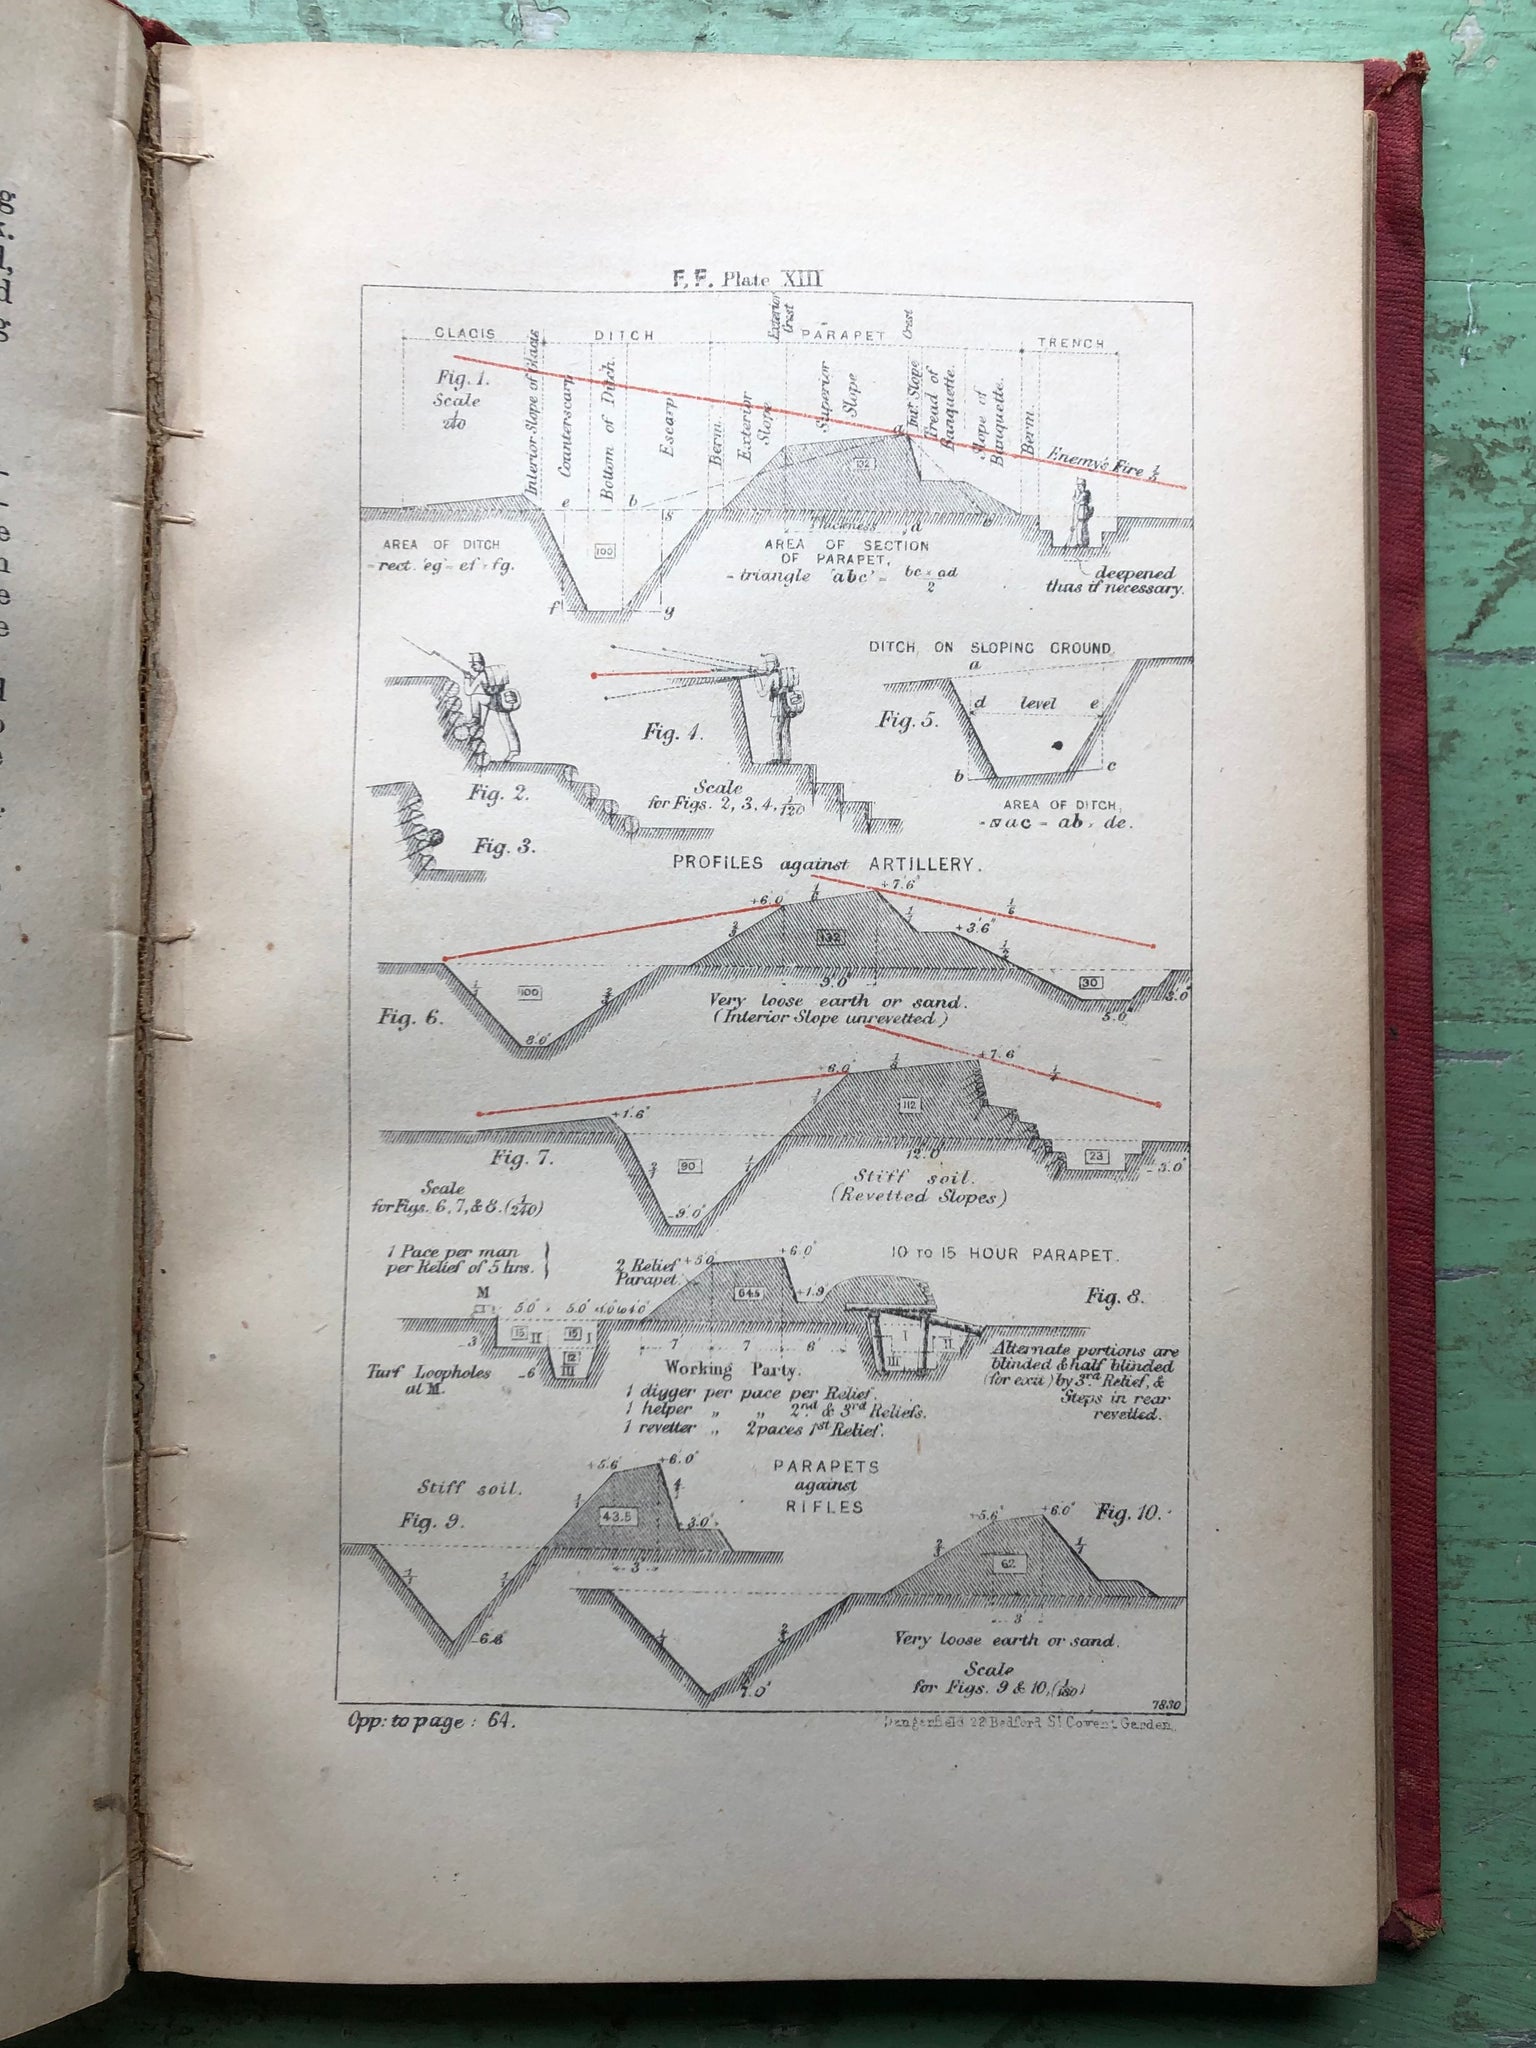 F.F. Plate XIII
GLACIS DITCH PARAPET TRENCH
Exterior Crest
Crest
Fig. 1.
Scale
1/240
Interior Slope of Glacis
Counterscarp
Bottom of Ditch
Escarp
Berm.
Exterior Slope
Superior Slope
Intr Slope
Tread of Banquette.
Slope of Banquette.
Berm.
Enemy's Fire
a
132
e b s
100
Thickness d
AREA OF DITCH
= rect. 'eg' = ef × fg.
AREA OF SECTION
OF PARAPET,
= triangle 'abc' = bc × ad / 2
deepened
thus if necessary.
f g
DITCH, ON SLOPING GROUND,
a
Fig. 4.
Fig. 5.
d level e
b c
Fig. 2.
Scale
for Figs. 2, 3, 4, 1/120
AREA OF DITCH,
ac = ab × de.
Fig. 3.
PROFILES against ARTILLERY.
+6.0" 1/6 +7.6"
2/3 132 1/1 +3'.6" 1/6
100 30
9.0" 3.0"
Very loose earth or sand.
(Interior Slope unrevetted)
8.0" 5.0"
Fig. 6.
+7.6"
112
+1'.6"
12.0"
Fig. 7.
90 23
-3.0"
Stiff soil.
(Revetted Slopes)
Scale
for Figs. 6, 7, & 8. (1/240)
-9'.0"
1 Pace per man
per Relief of 5 hrs.
2 Relief
Parapet.
+5.0' +6.0"
10 TO 15 HOUR PARAPET.
M
5.0" 5.0"
64.5 +1.9'
Fig. 8.
15 II 15 I
12 III
-3
-6
7 7 6'
I II III
Turf Loopholes
at M.
Working Party.
1 digger per pace per Relief.
1 helper „ „ 2nd & 3rd Reliefs.
1 revetter „ 2 paces 1st Relief.
Alternate portions are
blinded & half blinded
(for exit) by 3rd Relief, &
Steps in rear
revetted.
+5.6' +6.0"
Stiff soil.
Fig. 9.
43.5 +3.0"
PARAPETS
against
RIFLES
+5.6" +6.0"
Fig. 10.
62
3
3'
Very loose earth or sand.
Scale
for Figs. 9 & 10, (1/180)
7830
Opp: to page: 64.
Dangerfield 22 Bedford St Covent Garden.